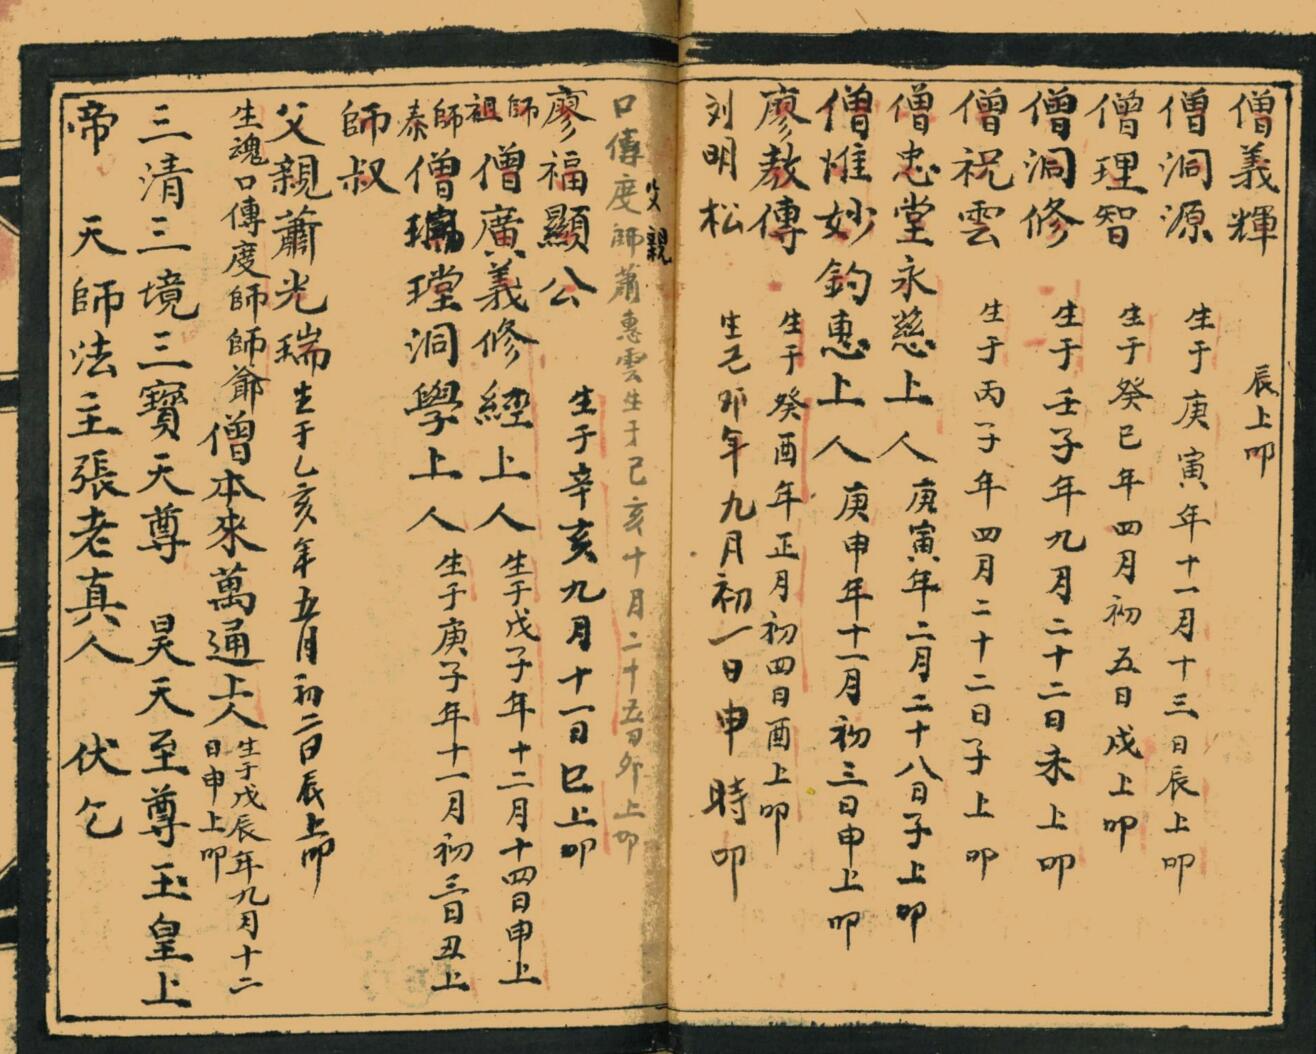 僧義輝 辰上叩
僧洞源 生于庚寅年十一月十三日辰上叩
僧理智 生于癸巳年四月初五日戌上叩
僧洞修 生于壬子年九月二十二日未上叩
僧祝雲 生于丙子年四月二十二日子上叩
僧忠堂永慈上人 庚寅年二月二十八日子上叩
僧惟妙鈞惠上人 庚申年十一月初三日申上叩
廖教傳 生于癸酉年正月初四日酉上叩
刘明松 生己卯年九月初一日申時叩
父親
口傳度師蕭惠雲生于己亥十月二十五日卯上叩
廖福顯公 生于辛亥九月十一日巳上叩
師祖 僧廣義修經上人 生于戊子年十二月十四日申上
師泰 僧瑞瑝洞學上人 生于庚子年十一月初三日丑上
師叔
父親蕭光瑞 生于乙亥年五月初二日辰上叩
生魂口傳度師師爺僧本來萬通上人 生于戊辰年九月十二日申上叩
三清三境三寶天尊 昊天至尊玉皇上
帝 天師法主張老真人 伏乞